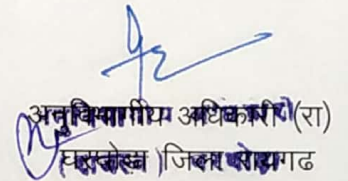 अनुविभागीय अधिकारी (रा)
घरघोडा जिला रायगढ